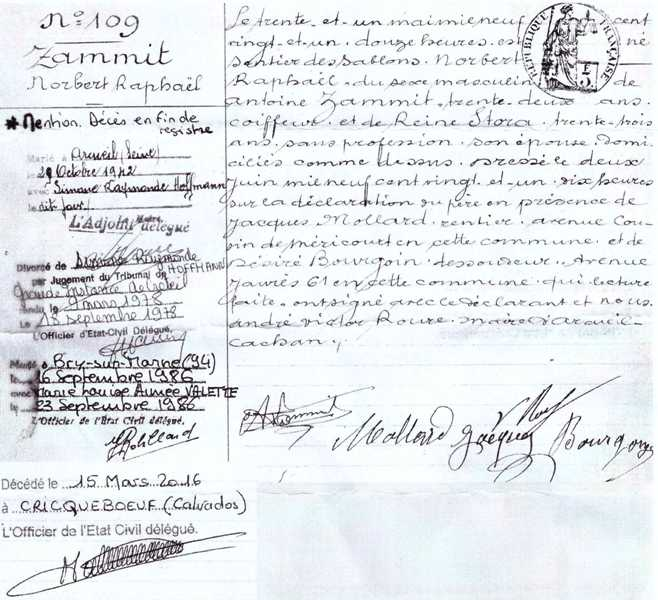 N° 109
Zammit
Norbert Raphaël
* Mention. Décès en fin de
registre
Marié à Arcueil (Seine)
le 29 Octobre 1942
avec Simone Raymonde Hoffmann
L'Adjoint délégué
Divorcé de Simone Raymonde
HOFFMANN
par Jugement du Tribunal de
Grande Instance de Créteil
rendu le 9 mars 1978
Le 13 Septembre 1978
L'Officier d'Etat-Civil Délégué,
Marié à Bry-sur-Marne (94)
le 16 Septembre 1986
avec Marie Louise Aimée VALETTE
le 23 Septembre 1986
L'Officier de l'État Civil délégué,
Décédé le 15 Mars 2016
à CRICQUEBOEUF (Calvados)
L'Officier de l'Etat Civil délégué.
Le trente et un mai mil neuf cent
vingt et un douze heures est né
sentier des Sablons. Norbert
Raphaël du sexe masculin de
antoine Zammit trente deux ans
coiffeur et de Reine Stora trente trois
ans sans profession son épouse domi
ciliés comme dessus. Dressé le deux
Juin mil neuf cent vingt et un dix heures
sur la déclaration du père en présence de
Jacques Mollard rentier avenue Cou
sin de Méricourt en cette commune et de
Désiré Bourgoin dessoudeur Avenue
Jaurès 61 en cette commune qui lecture
faite ont signé avec le déclarant et nous
andré victor Roure maire d'arcueil
cachan.
RÉPUBLIQUE FRANÇAISE
AZammit
Mollard Jacques Bourgoin